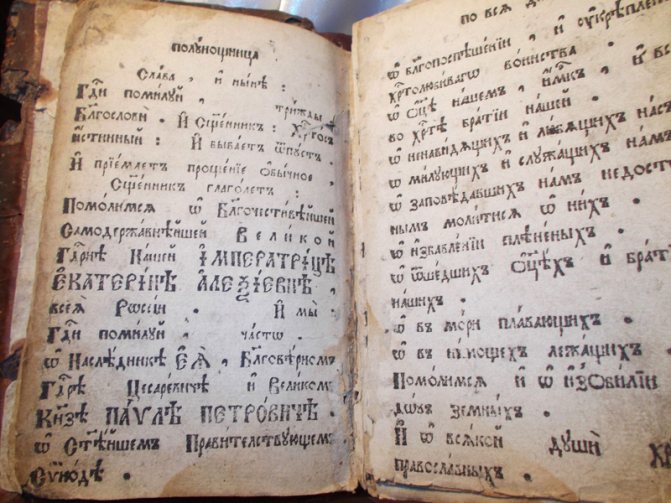 полꙋнощница
Слава , и нынѣ :
Гдⷭ҇и помилꙋй , трижды
Блгⷭ҇ослови . И Сщ҃енникъ : Хрⷭ҇тосъ
и҆стинный : И бываетъ ѿпꙋстъ .
И прїемлетъ прощенїе ѻ҆бычное ,
Сщ҃енникъ глаголетъ :
Помолимсѧ ѡ҆ Блгⷭ҇очестивѣйшей
Самодержавнѣйшей Великой
Гдⷭ҇рнѣ Нашей І҆МПЕРАТРИЦѢ
Є҆КАТЕРИНѢ АЛЕѮІЕВНѢ ,
всеѧ̀ Рѡссїи . И мы :
Гдⷭ҇и помилꙋй , частѡ
ѡ҆ Наслѣдникѣ Є҆Ѧ̀ , Блгⷭ҇овѣрномъ
Гдⷭ҇рѣ Цесаревичѣ и Великомъ
Кнѧ҃зѣ ПАѴЛѢ ПЕТРОВИЧѢ .
ѡ҆ Ст҃ѣйшемъ Правителствꙋющемъ
Сѵнодѣ .
по всѧ
ѡ҆ блгⷭ҇опоспѣшенїи , и ᲂукрѣплен
хрⷭ҇толюбивагѡ воинства .
ѡ҆ ѻ҆ц҃ѣ нашемъ , и҆м҃къ , и в
во хрⷭ҇тѣ братїи нашей .
ѡ҆ ненавидѧщихъ и любѧщихъ нас
ѡ҆ милꙋющихъ и слꙋжащихъ намъ
ѡ҆ заповѣдавшихъ намъ недост
нымъ молитисѧ ѡ҆ нихъ .
ѡ҆ и҆збавленїи плѣненыхъ .
ѡ҆ ѿшедшихъ ѻ҆ц҃ѣхъ и брат
нашихъ .
ѡ҆ въ мори плавающихъ .
ѡ҆ въ немощехъ лежащихъ
Помолимсѧ и ѡ҆ и҆зѻбилїи
земныхъ .
И ѡ҆ всѧкой дꙋши
православныхъ .